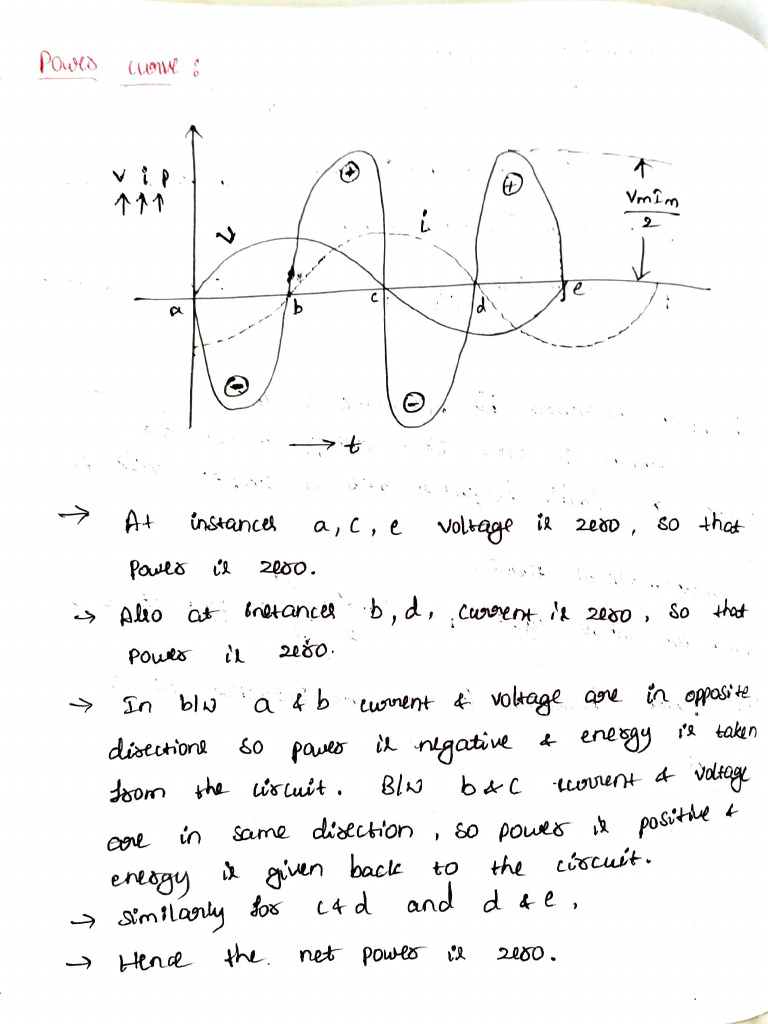 Power curve :
V i P
↑↑↑
V
+
i
+
VmIm
2
a
b
c
d
e
-
-
→ t
→ At instances a, c, e voltage is zero, so that
Power is zero.
→ Also at instances b, d, current is zero, so that
power is zero.
→ In b/w a & b current & voltage are in opposite
directions so power is negative & energy is taken
from the circuit. B/W b & c current & voltage
are in same direction, so power is positive &
energy is given back to the circuit.
→ Similarly for c & d and d & e,
→ Hence the net power is zero.